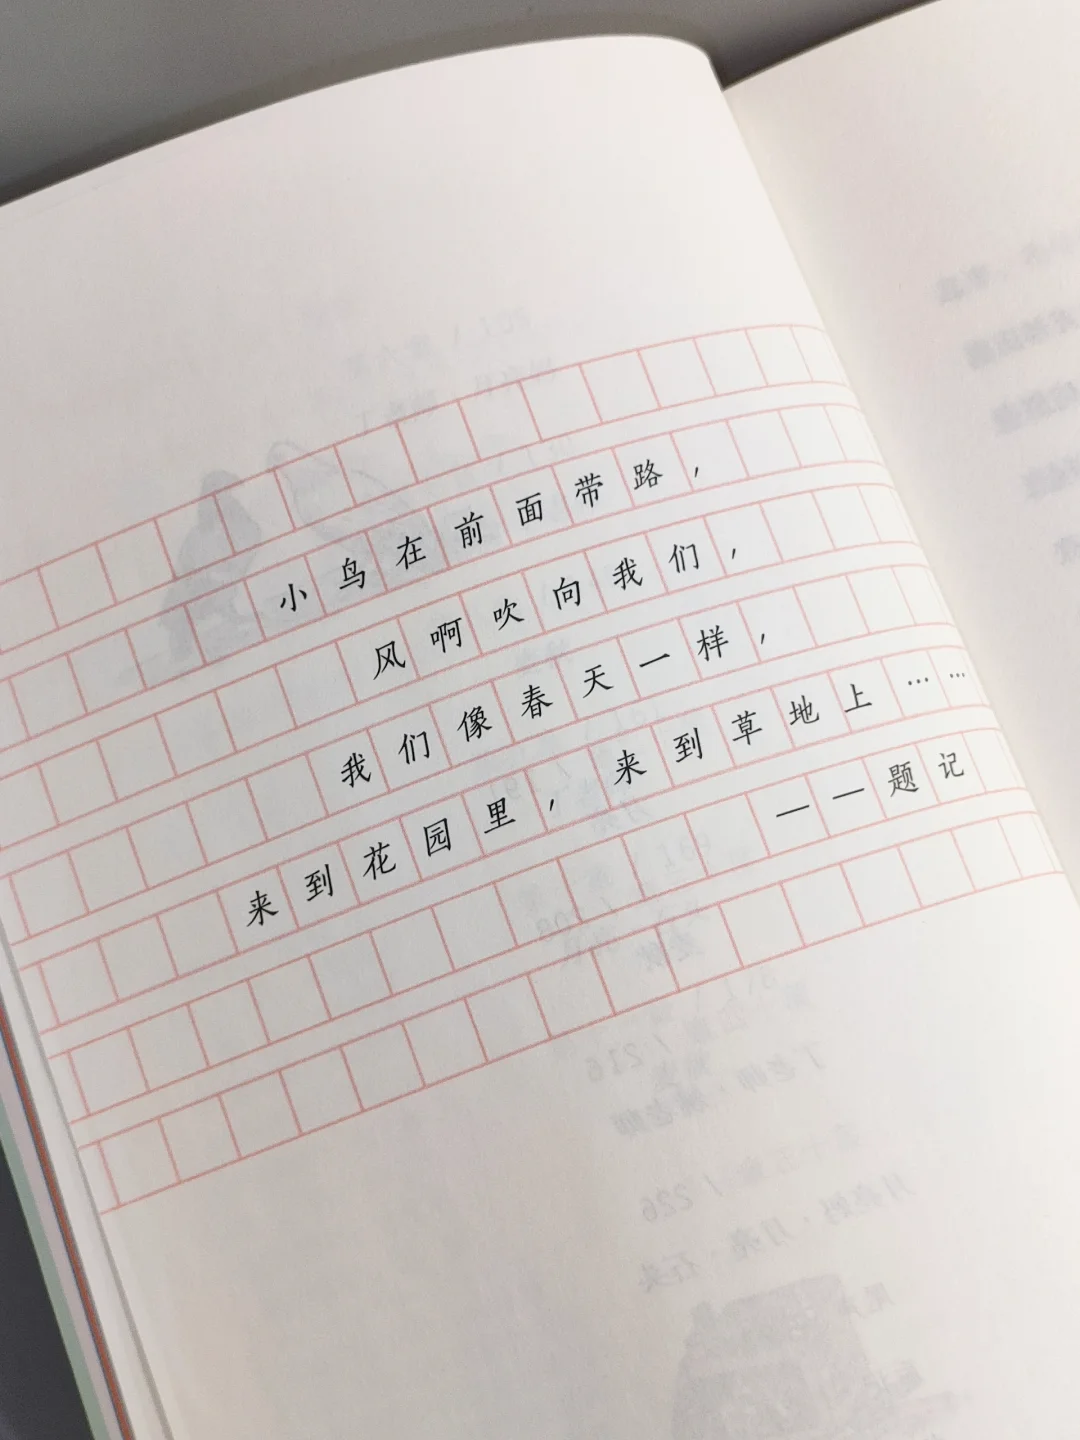 小鸟在前面带路，
风啊吹向我们，
我们像春天一样，
来到花园里，来到草地上……
——题记